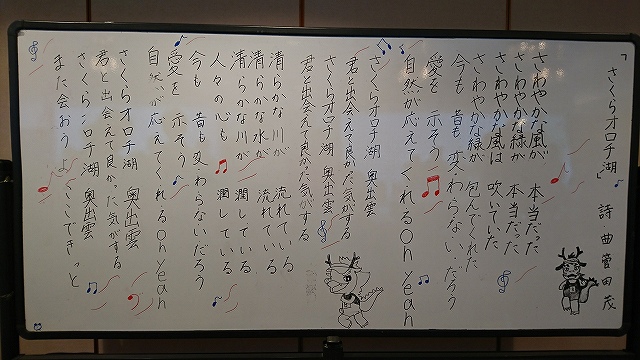 「さくらオロチ湖」 詩 曲 菅田 茂
さわやかな風が 本当だった
さわやかな緑が 本当だった
さわやかな風は 吹いていた
さわやかな緑が 包んでくれた
今も 昔も 変わらない だろう
愛を 示そう
自然が応えてくれる Oh yean
さくらオロチ湖 奥出雲
君と出会えて良かった気がする
さくらオロチ湖 奥出雲
君と出会えて良かった気がする
清らかな川が 流れている
清らかな水が 流れている
清らかな川が 潤している
人々の心も 潤している
今も 昔も変わらないだろう
愛を 示そう
自然が応えてくれる Oh yean
さくらオロチ湖 奥出雲
君と出会えて良かった気がする
さくらオロチ湖 奥出雲
また会おうよ ここできっと